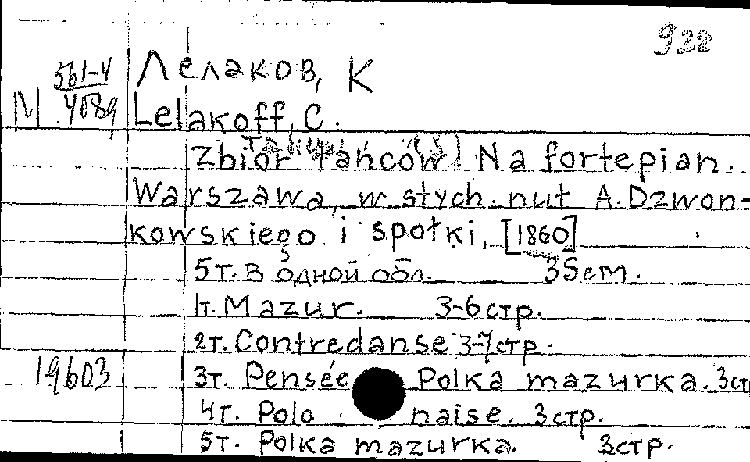 922
561-4
Лелаков, К
М 4089
Lelakoff, C.
Zbiór Tańców Na fortepian.
Warszawa, w stych. nut A. Dzwon-
kowskiego i społki, [1860]
5т. в одной обл. 35cm.
1т. Mazur. 3-6 стр.
2т. Contredanse 3-7 стр.
19603 3т. Pensée Polka mazurka. 3 ст
4т. Polo naise. 3 стр.
5т. Polka mazurka. 3 стр.